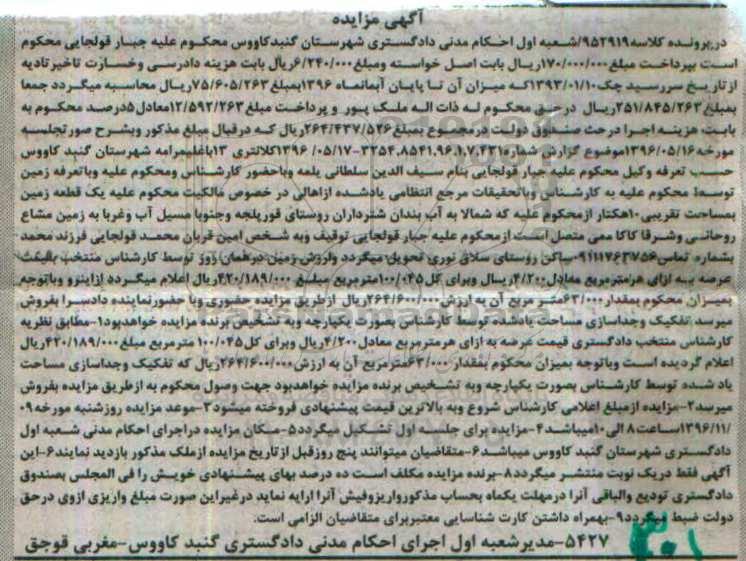 آگهی مزایده
در پرونده کلاسه ۹۵۲۹۱۹/شعبه اول احکام مدنی دادگستری شهرستان گنبدکاووس محکوم علیه جبار قولجایی محکوم
است بپرداخت مبلغ ۱۷۰/۰۰۰/۰۰۰ریال بابت اصل خواسته ومبلغ ۶/۲۴۰/۰۰۰ریال بابت هزینه دادرسی وخسارت تاخیر تادیه
از تاریخ سررسید چک ۱۳۹۳/۰۱/۱۰که میزان آن تا پایان آبانماه ۱۳۹۶بمبلغ ۷۵/۶۰۵/۲۶۳ریال محاسبه میگردد جمعا
بمبلغ ۲۵۱/۸۴۵/۲۶۳ریال درحق محکوم له ذات اله ملک پور و پرداخت مبلغ ۱۲/۵۹۲/۲۶۳معادل ۵درصد محکوم به
بابت هزینه اجرا درحق صندوق دولت درمجموع بمبلغ ۲۶۴/۴۳۷/۵۲۶ریال که درقبال مبلغ مذکور وبشرح صورتجلسه
مورخه ۱۳۹۶/۰۵/۱۶موضوع گزارش شماره ۳۳۵۴،۸۵۴۱،۹۶،۱،۷،۴۳۱-۱۳۹۶/۰۵/۱۷کلانتری ۱۳باغلیمرامه شهرستان گنبد کاووس
حسب تعرفه وکیل محکوم علیه جبار قولجایی بنام سیف الدین سلطانی یلمه وباحضور کارشناس ومحکوم علیه وباتعرفه زمین
توسط محکوم علیه به کارشناس وباتحقیقات مرجع انتظامی یادشده ازاهالی در خصوص مالکیت محکوم علیه یک قطعه زمین
بمساحت تقریبی ۱۰هکتار ازمحکوم علیه که شمالا به آب بندان شترداران روستای قورپلجه وجنوبا مسیل آب وغربا به زمین مشاع
روحانی وشرقا کاکا ممی متصل است ازمحکوم علیه جبار قولجایی توقیف وبه شخص امین قربان محمد قولجایی فرزند محمد
بشماره تماس ۰۹۱۱۱۷۶۳۷۵۶ساکن روستای سلاق نوری تحویل میگردد وارزش زمین درهمان روز توسط کارشناس منتخب بقیمت
عرصه به ازای هرمترمربع معادل ۴/۲۰۰ریال وبرای کل ۱۰۰/۰۴۵مترمربع مبلغ ۴۲۰/۱۸۹/۰۰۰ریال اعلام میگردد ازاینرو وباتوجه
بمیزان محکوم بمقدار ۶۳/۰۰۰متر مربع آن به ارزش ۲۶۴/۶۰۰/۰۰۰ریال ازطریق مزایده حضوری وبا حضورنماینده دادسرا بفروش
میرسد تفکیک وجداسازی مساحت یادشده توسط کارشناس بصورت یکپارچه وبه تشخیص برنده مزایده خواهدبود۱-مطابق نظریه
کارشناس منتخب دادگستری قیمت عرصه به ازای هرمترمربع معادل ۴/۲۰۰ریال وبرای کل ۱۰۰/۰۴۵ مترمربع مبلغ ۴۲۰/۱۸۹/۰۰۰ریال
اعلام گردیده است وباتوجه بمیزان محکوم بمقدار ۶۳/۰۰۰مترمربع آن به ارزش ۲۶۴/۶۰۰/۰۰۰ریال که تفکیک وجداسازی مساحت
یاد شده توسط کارشناس بصورت یکپارچه وبه تشخیص برنده مزایده خواهدبود جهت وصول محکوم به ازطریق مزایده بفروش
میرسد۲-مزایده ازمبلغ اعلامی کارشناس شروع وبه بالاترین قیمت پیشنهادی فروخته میشود۳-موعد مزایده روزشنبه مورخه ۰۹
/۱۳۹۶/۱۱ساعت ۸ الی ۱۰میباشد۴-مزایده برای جلسه اول تشکیل میگردد۵-مکان مزایده دراجرای احکام مدنی شعبه اول
دادگستری شهرستان گنبد کاووس میباشد۶-متقاضیان میتوانند پنج روزقبل ازتاریخ مزایده ازملک مذکور بازدید نمایند۶-این
آگهی فقط دریک نوبت منتشر میگردد۸-برنده مزایده مکلف است ده درصد بهای پیشنهادی خویش را فی المجلس بصندوق
دادگستری تودیع والباقی آنرا درمهلت یکماه بحساب مذکورواریزوفیش آنرا ارایه نماید درغیراین صورت مبلغ واریزی ازوی درحق
دولت ضبط میگردد۹-بهمراه داشتن کارت شناسایی معتبربرای متقاضیان الزامی است.
۵۴۲۷-مدیرشعبه اول اجرای احکام مدنی دادگستری گنبد کاووس-مغربی قوجق
۳۰۱